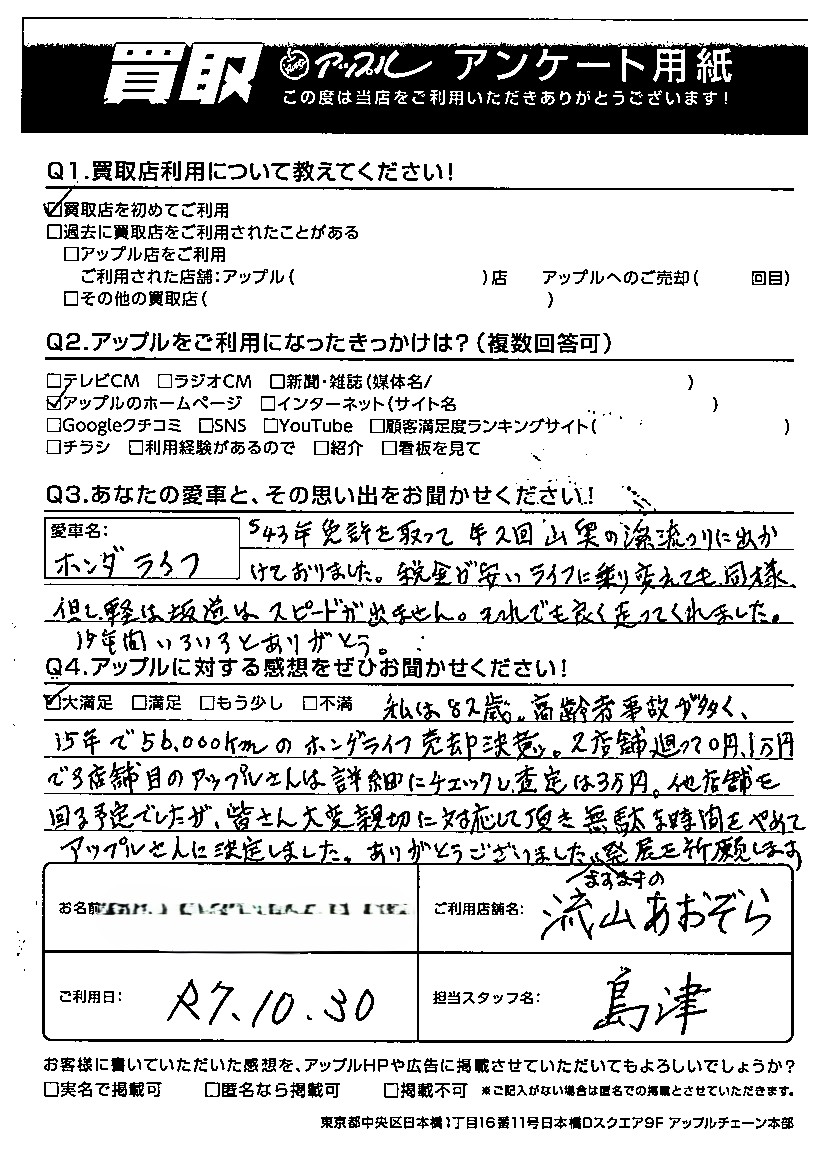 買取 アップル アンケート用紙
この度は当店をご利用いただきありがとうございます!
Q1.買取店利用について教えてください!
☑買取店を初めてご利用
□過去に買取店をご利用されたことがある
□アップル店をご利用
ご利用された店舗:アップル( )店 アップルへのご売却( 回目)
□その他の買取店( )
Q2.アップルをご利用になったきっかけは?(複数回答可)
□テレビCM □ラジオCM □新聞・雑誌(媒体名/ )
☑アップルのホームページ □インターネット(サイト名 )
□Googleクチコミ □SNS □YouTube □顧客満足度ランキングサイト( )
□チラシ □利用経験があるので □紹介 □看板を見て
Q3.あなたの愛車と、その思い出をお聞かせください!
愛車名:
ホンダ ライフ
S43年免許を取って年2回山梨の渓流つりに出か
けておりました。税金が安いライフに乗り変えても同様、
但し軽は坂道はスピードが出ません。それでも良く走ってくれました。
15年間いろいろとありがとう。
Q4.アップルに対する感想をぜひお聞かせください!
☑大満足 □満足 □もう少し □不満 私は82歳。高齢者事故が多く、
15年で56,000kmのホンダライフ売却決意。2店舗廻って0円、1万円
で3店舗目のアップルさんは詳細にチェックし査定は3万円。他店舗を
回る予定でしたが、皆さん大変親切に対応して頂き無駄な時間をやめて
アップルさんに決定しました。ありがとうございました。発展を祈願します
ますますの
お名前
ご利用店舗名: 流山あおぞら
ご利用日: R7.10.30
担当スタッフ名: 島津
お客様に書いていただいた感想を、アップルHPや広告に掲載させていただいてもよろしいでしょうか?
□実名で掲載可 □匿名なら掲載可 □掲載不可 ※ご記入がない場合は匿名での掲載とさせていただきます。
東京都中央区日本橋1丁目16番11号日本橋Dスクエア9F アップルチェーン本部